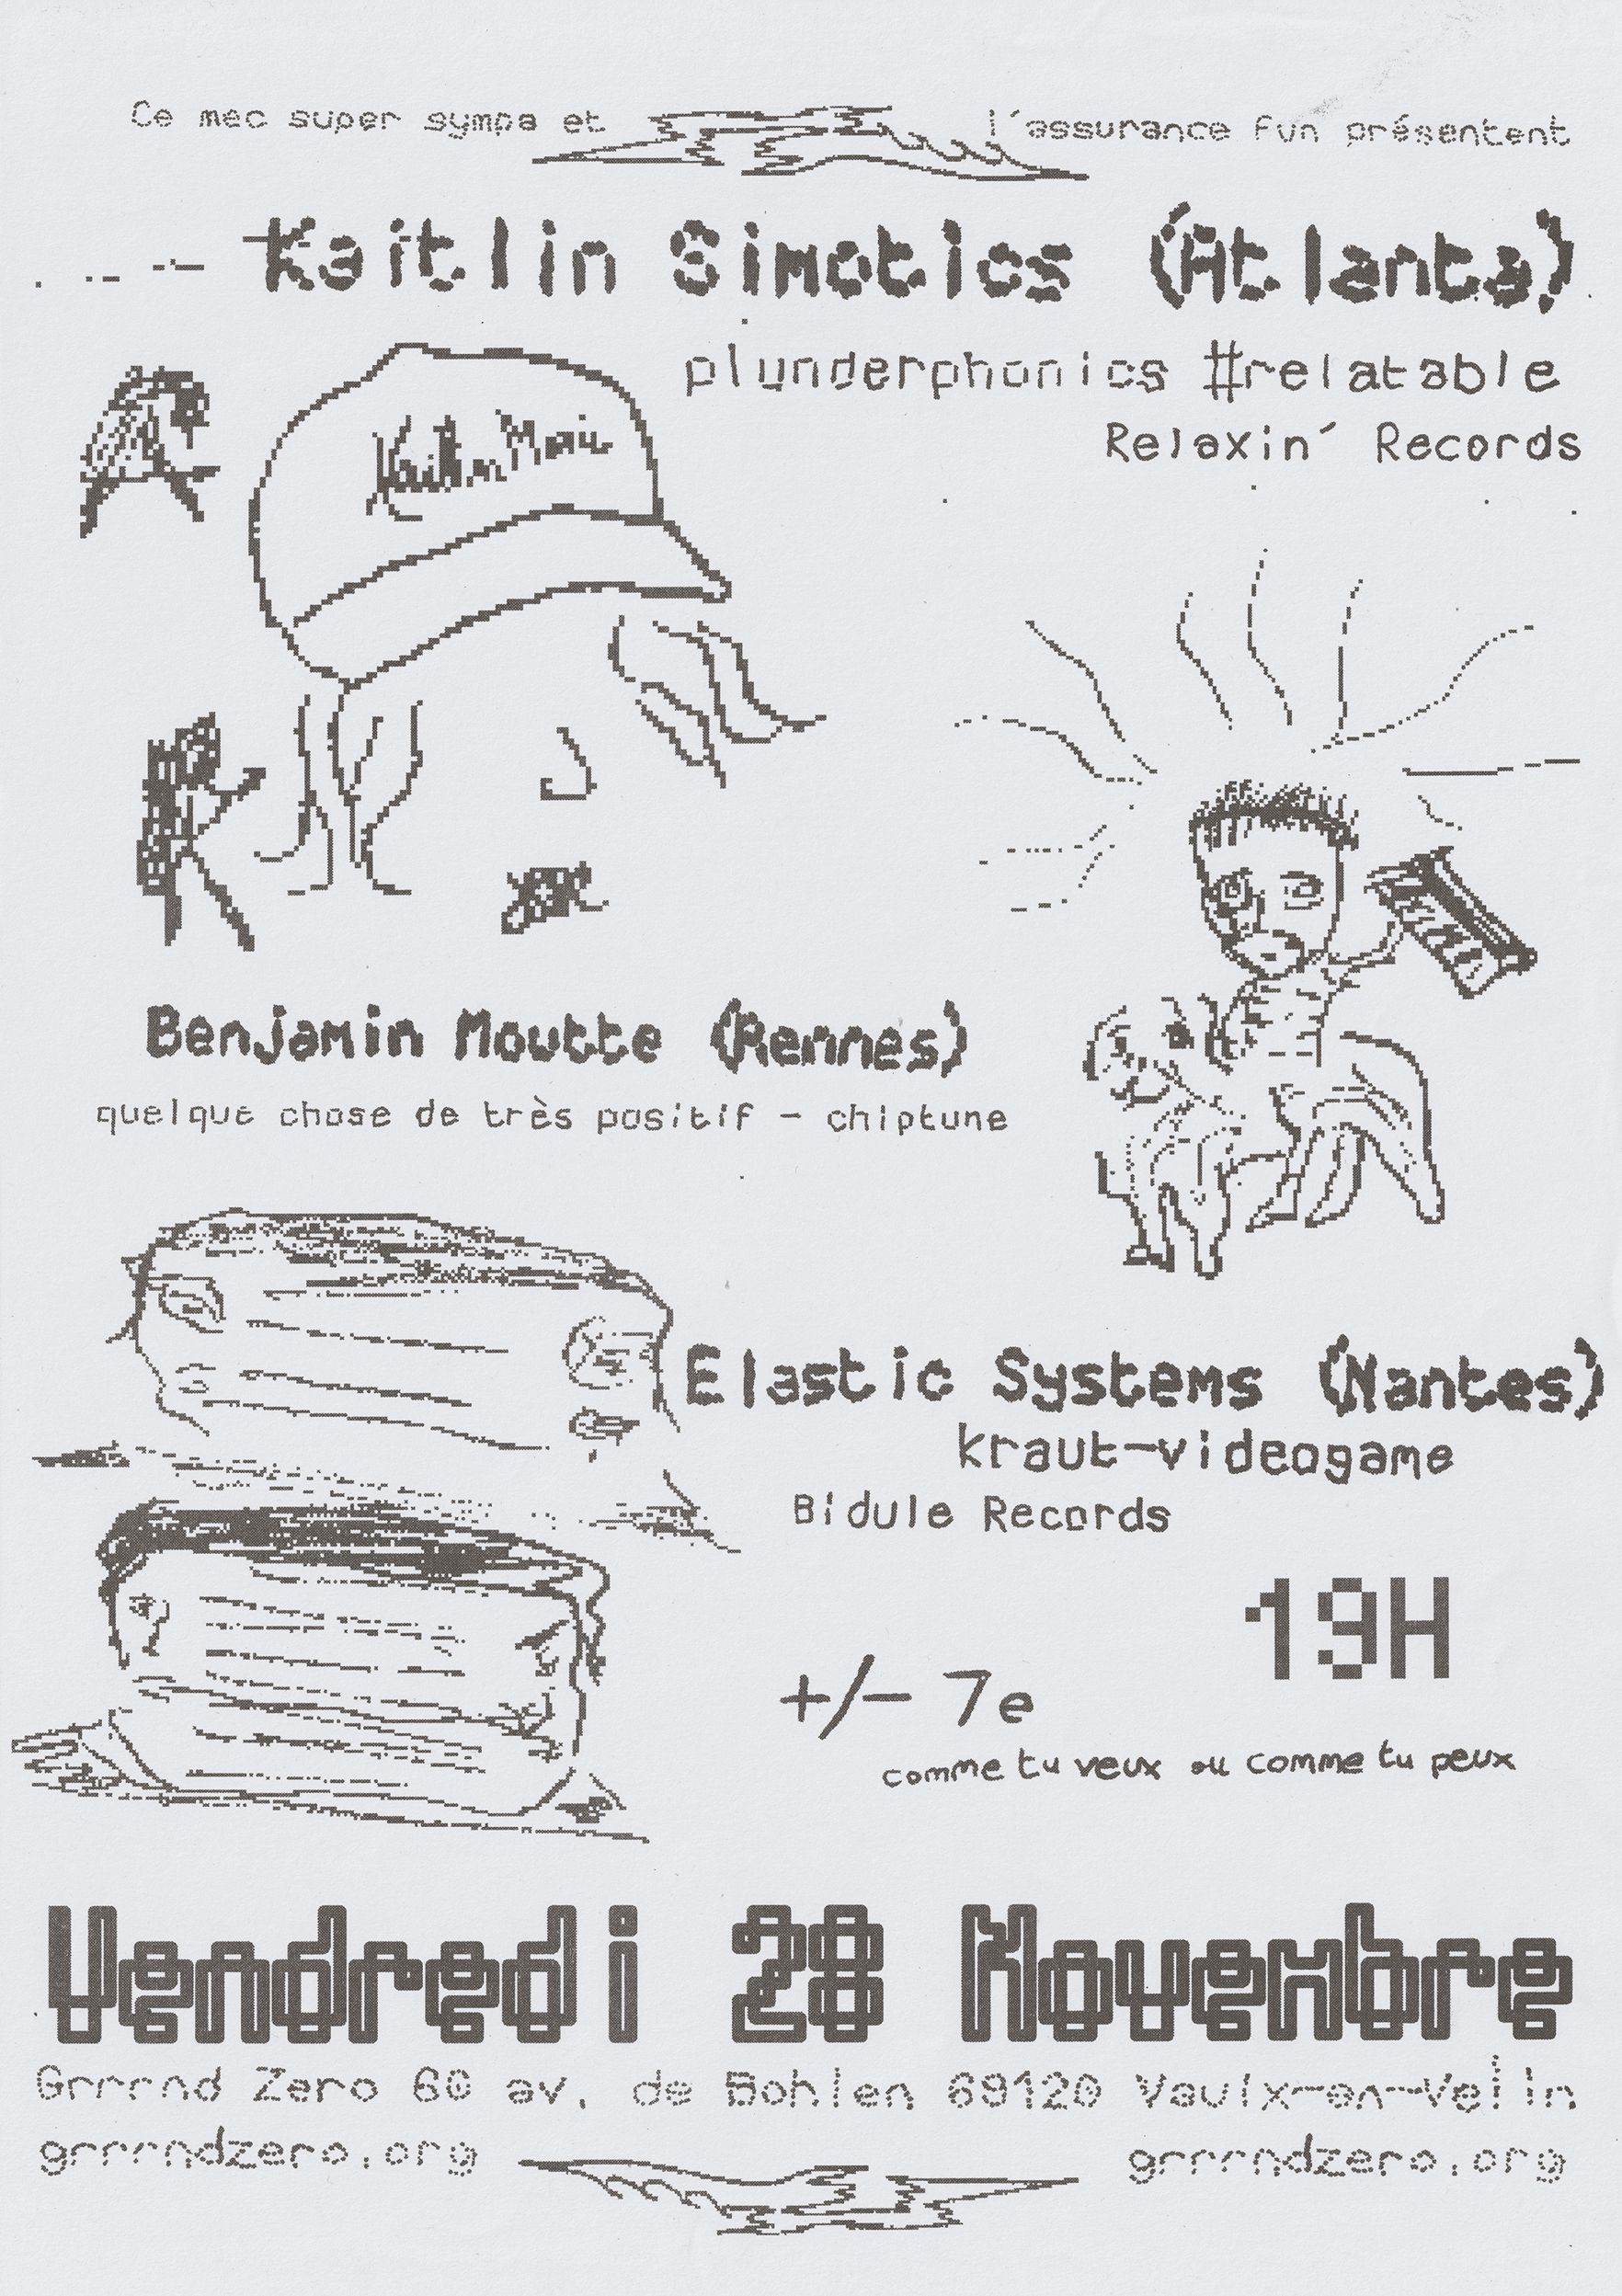 Ce mec super sympa et l'assurance fun présentent
Kaitlin Simotics (Atlanta)
plunderphonics #relatable
Relaxin' Records
Benjamin Moutte (Rennes)
quelque chose de très positif - chiptune
Elastic Systems (Nantes)
kraut-videogame
Bidule Records
19H
+/- 7e
comme tu veux ou comme tu peux
Vendredi 28 Novembre
Grrrnd Zero 60 av. de Bohlen 69120 Vaulx-en-Velin
grrrndzero.org grrrndzero.org